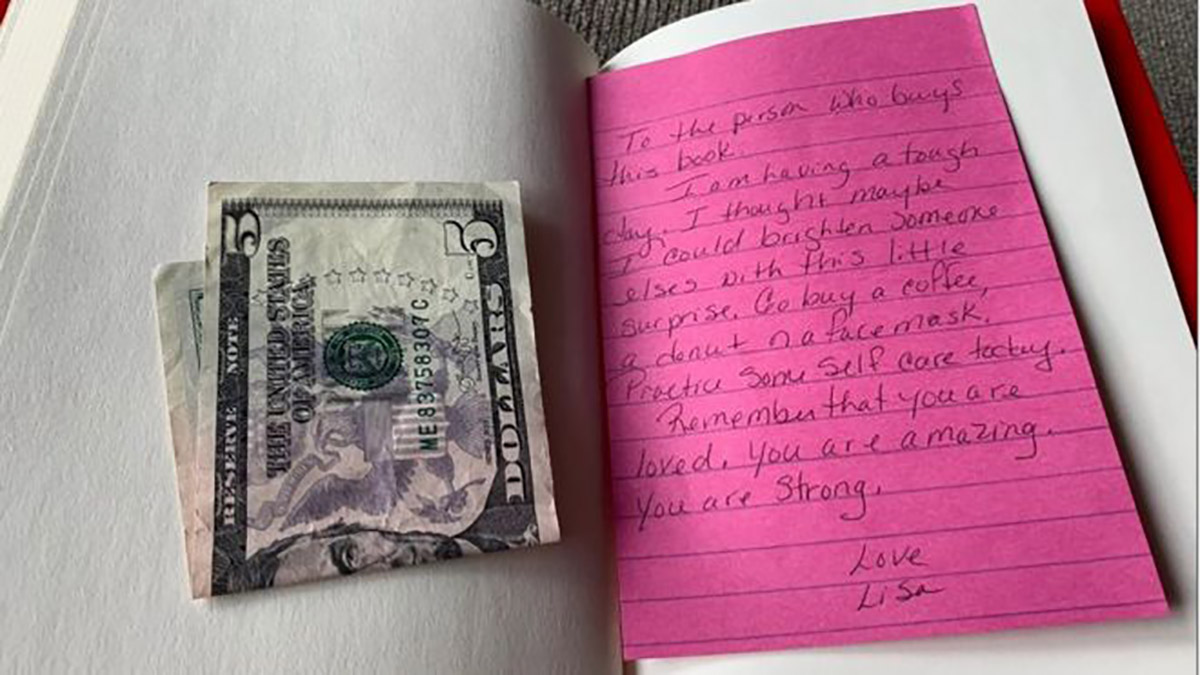 5
5
THE UNITED STATES
OF AMERICA
RESERVE NOTE
ME83758307C
DOLLARS
To the person who buys
this book.
I am having a tough
day. I thought maybe
I could brighten someone
elses with this little
surprise. Go buy a coffee,
a donut n a face mask.
Practice some self care today.
Remember that you are
loved. You are amazing.
You are strong.
Love
Lisa